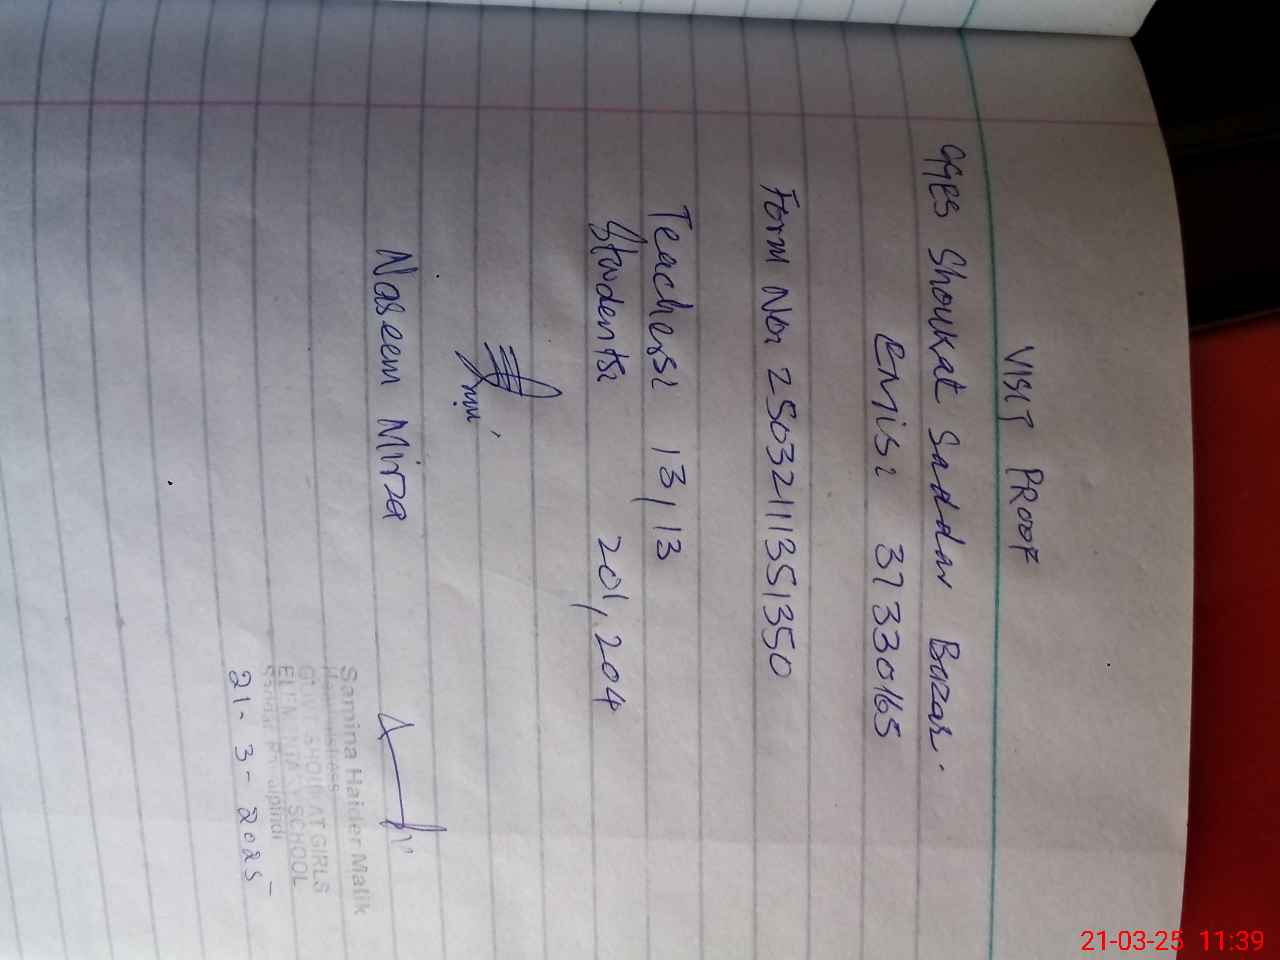 VISIT PROOF
GGES Shoukat Saddar Bazar.
EMIS: 37330165
Form No: 25032111351350
Teachers: 13, 13
Students: 201, 204
Naseem Mirza
Samina Haider Malik
Headmistress
GOVT SHOUKAT GIRLS
ELEMENTARY SCHOOL
21-3-2025
21-03-25 11:39